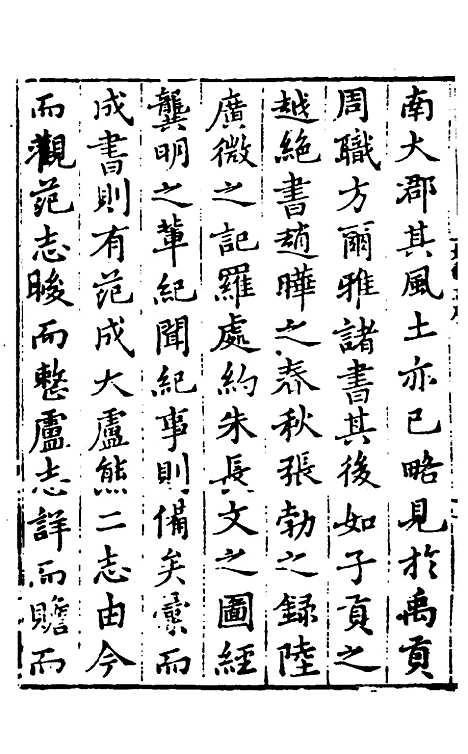 南大郡其風土亦已略見於禹貢
周職方爾雅諸書其後如子貢之
越絶書趙曄之春秋張勃之録陸
廣微之記羅處約朱長文之圖經
龔明之輩紀聞紀事則備矣彙而
成書則有范成大盧熊二志由今
而觀范志畯而整盧志詳而贍而